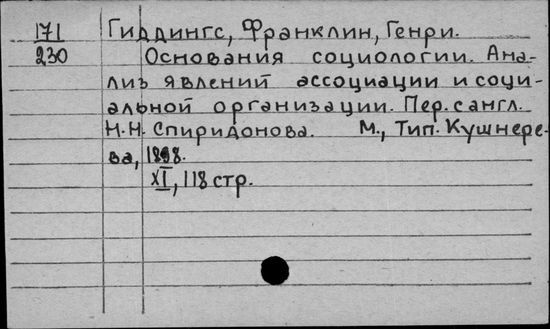 171 Гиддингс, Франклин, Генри.
230 Основания социологии. Ана-
лиз явлений ассоциации и соци-
альной организации. Пер. с англ.
Н.Н. Спиридонова. М., Тип. Кушнере-
ва, 1898.
XI, 118 стр.